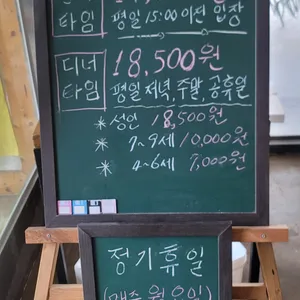 타임 평일 15:00 이전 입장
디너 18,500원
타임 평일 저녁, 주말, 공휴일
* 성인 18,500원
* 7~9세 10,000원
* 4~6세 7,000원
정기휴일
(매주 월요일)